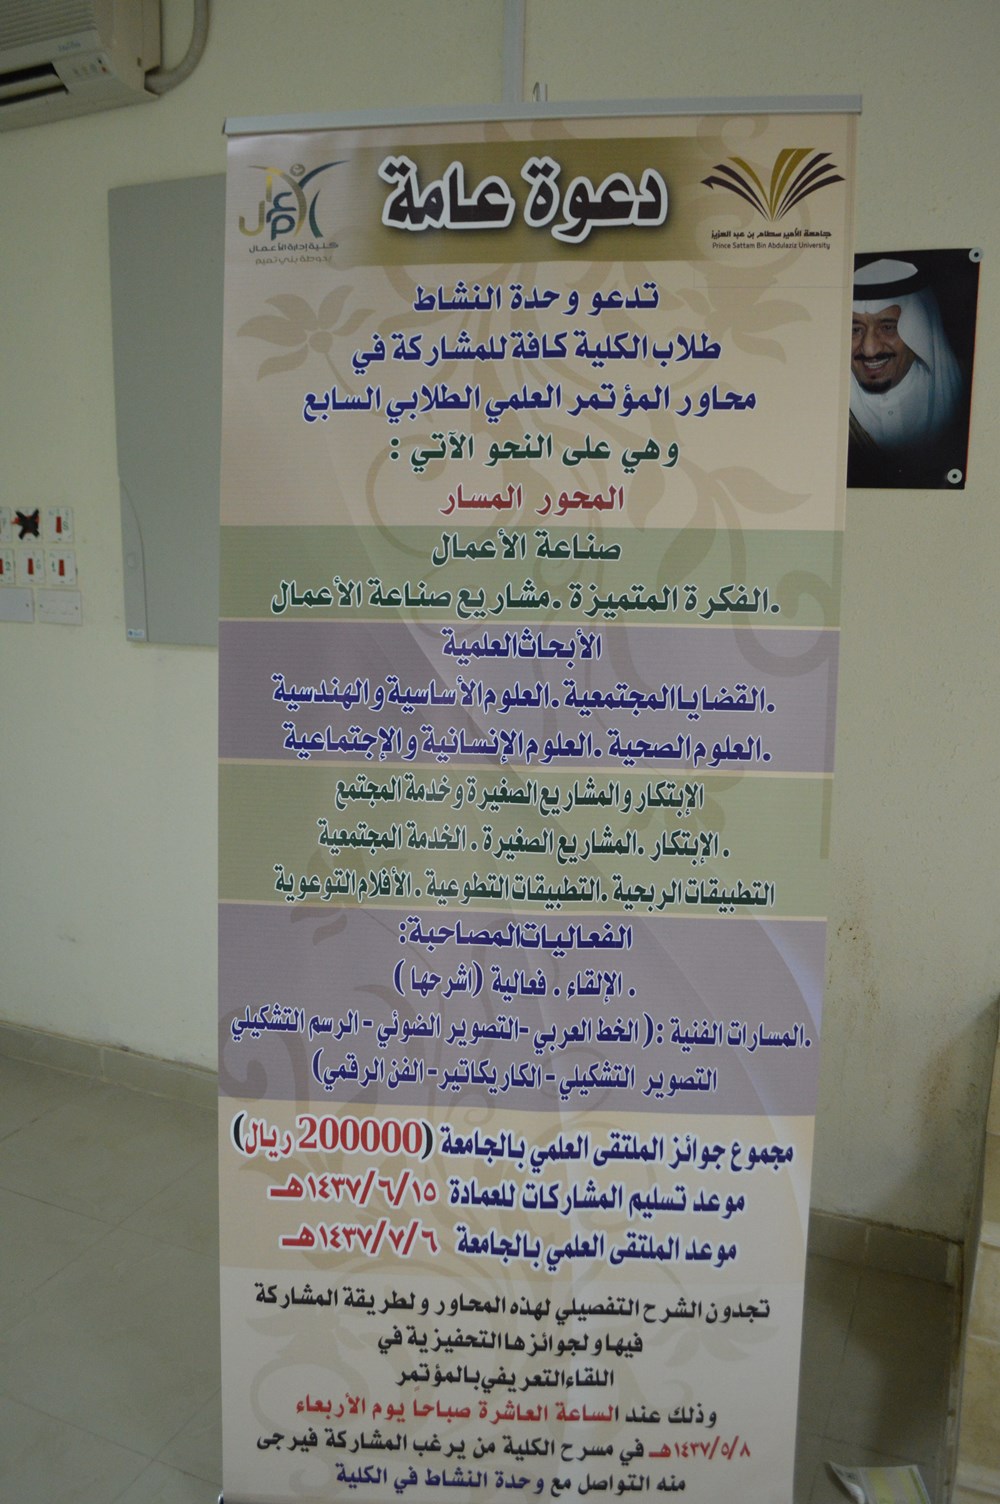 دعوة عامة
جامعة الأمير سطام بن عبد العزيز
Prince Sattam Bin Abdulaziz University
كلية إدارة الأعمال
بحوطة بني تميم
تدعو وحدة النشاط
طلاب الكلية كافة للمشاركة في
محاور المؤتمر العلمي الطلابي السابع
وهي على النحو الآتي :
المحور المسار
صناعة الأعمال
.الفكرة المتميزة .مشاريع صناعة الأعمال
الأبحاث العلمية
.القضايا المجتمعية .العلوم الأساسية والهندسية
.العلوم الصحية .العلوم الإنسانية والإجتماعية
الإبتكار والمشاريع الصغيرة وخدمة المجتمع
. الإبتكار .المشاريع الصغيرة . الخدمة المجتمعية
التطبيقات الربحية .التطبيقات التطوعية . الأفلام التوعوية
الفعاليات المصاحبة:
. الإلقاء . فعالية (اشرحها )
.المسارات الفنية :( الخط العربي -التصوير الضوئي - الرسم التشكيلي
التصوير التشكيلي - الكاريكاتير - الفن الرقمي)
مجموع جوائز الملتقى العلمي بالجامعة (200000 ريال)
موعد تسليم المشاركات للعمادة ١٤٣٧/٦/١٥هـ
موعد الملتقى العلمي بالجامعة ١٤٣٧/٧/٦هـ
تجدون الشرح التفصيلي لهذه المحاور ولطريقة المشاركة
فيها ولجوائزها التحفيزية في
اللقاء التعريفي بالمؤتمر
وذلك عند الساعة العاشرة صباحاً يوم الأربعاء
١٤٣٧/٥/٨هـ في مسرح الكلية من يرغب المشاركة فيرجى
منه التواصل مع وحدة النشاط في الكلية